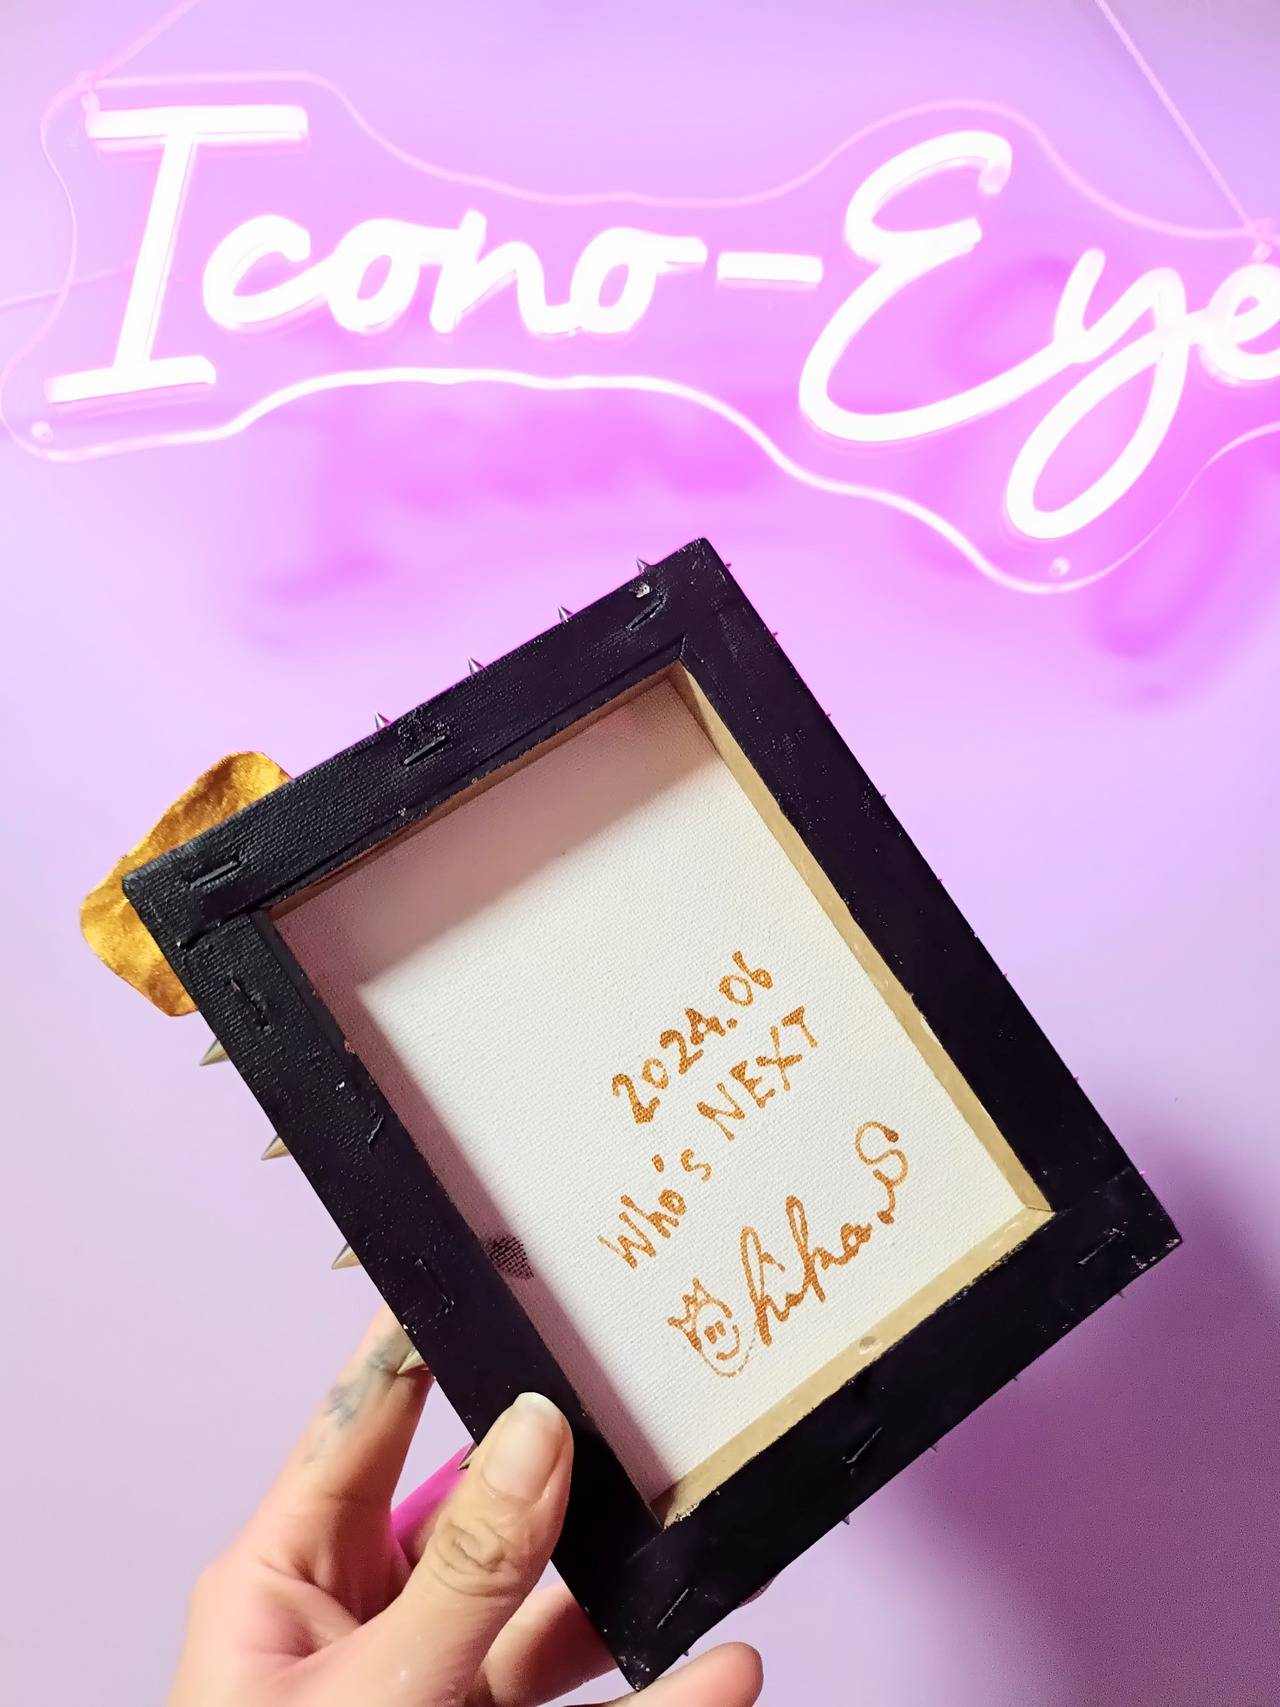 Icono-Eye
2024.06
Who's NEXT
Chika.S